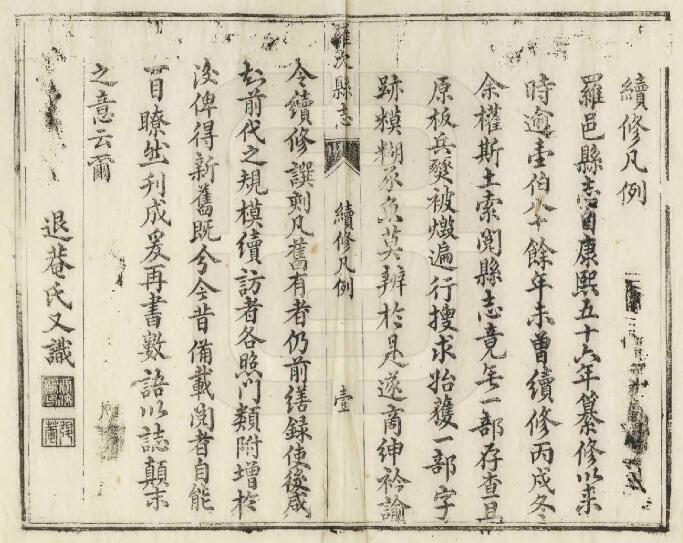 續修凡例
羅邑縣志自康熙五十六年纂修以來
時逾壹伯八十餘年未曾續修丙戌冬
余權斯土索閱縣志竟無一部存查且
原板兵燹被燬遍行搜求始獲一部字
跡糢糊豕魚莫辨於是遂商紳衿諭
羅次縣志
續修凡例
壹
令續修譔刻凡舊有者仍前繕錄使後咸
知前代之規模續訪者各照門類附增於
後俾得新舊既分今昔備載閱者自能
一目瞭然刊成爰再書數語以誌顛末
之意云爾
退菴氏又識